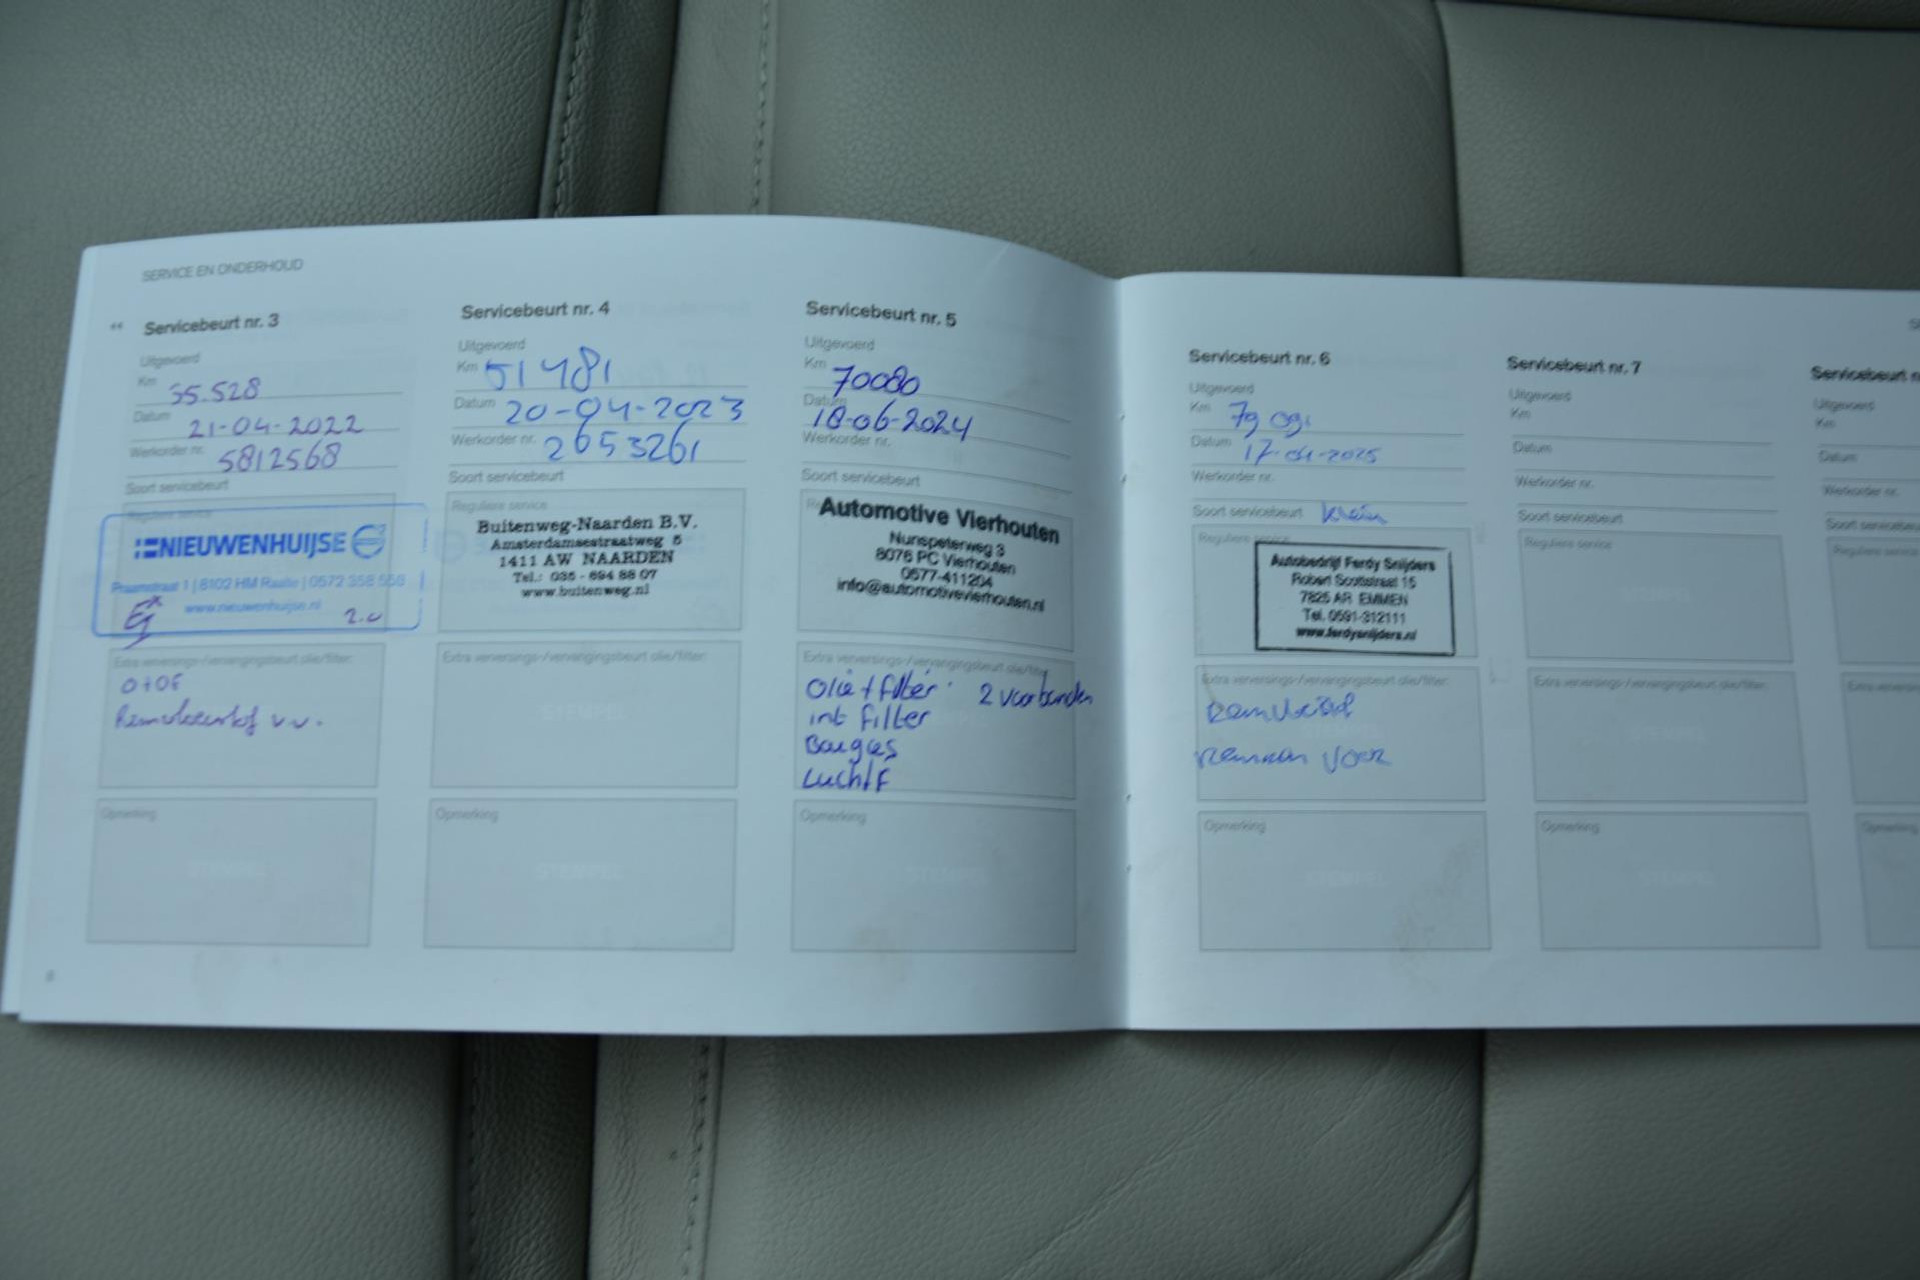 SERVICE EN ONDERHOUD
Servicebeurt nr. 3
Uitgevoerd
Km 35.528
Datum 21-04-2022
Werkorder nr. 5812568
Soort servicebeurt
Reguliere service
NIEUWENHUIJSE
Praamstraat 1 | 8102 HM Raalte | 0572 358 558
www.nieuwenhuijse.nl
2.0
Extra verversings-/vervangingsbeurt olie/filter:
O+OF
Remvloeistof v.v.
Opmerking
STEMPEL
8
Servicebeurt nr. 4
Uitgevoerd
Km 51481
Datum 20-04-2023
Werkorder nr. 2653261
Soort servicebeurt
Reguliere service
Buitenweg-Naarden B.V.
Amsterdamsestraatweg 5
1411 AW NAARDEN
Tel.: 035 - 694 88 07
www.buitenweg.nl
Extra verversings-/vervangingsbeurt olie/filter:
STEMPEL
Opmerking
STEMPEL
Servicebeurt nr. 5
Uitgevoerd
Km 70080
Datum 18-06-2024
Werkorder nr.
Soort servicebeurt
Automotive Vierhouten
Nunspeterweg 3
8076 PC Vierhouten
0577-411204
info@automotivevierhouten.nl
Extra verversings-/vervangingsbeurt olie/filter:
Olie + filter 2 voorbanden
int filter
Bougies
Luchtf
Opmerking
STEMPEL
Servicebeurt nr. 6
Uitgevoerd
Km 79 091
Datum 17-04-2025
Werkorder nr.
Soort servicebeurt klein
Reguliere service
Autobedrijf Ferdy Snijders
Robert Scottstraat 15
7825 AR EMMEN
Tel. 0591-312111
www.ferdysnijders.nl
Extra verversings-/vervangingsbeurt olie/filter:
remmen voor
Opmerking
STEMPEL
Servicebeurt nr. 7
Uitgevoerd
Km
Datum
Werkorder nr.
Soort servicebeurt
Reguliere service
STEMPEL
Extra verversings-/vervangingsbeurt olie/filter:
STEMPEL
Opmerking
STEMPEL
Servicebeurt n
Uitgevoerd
Km
Datum
Werkorder nr.
Soort servicebeurt
Reguliere service
Opmerking